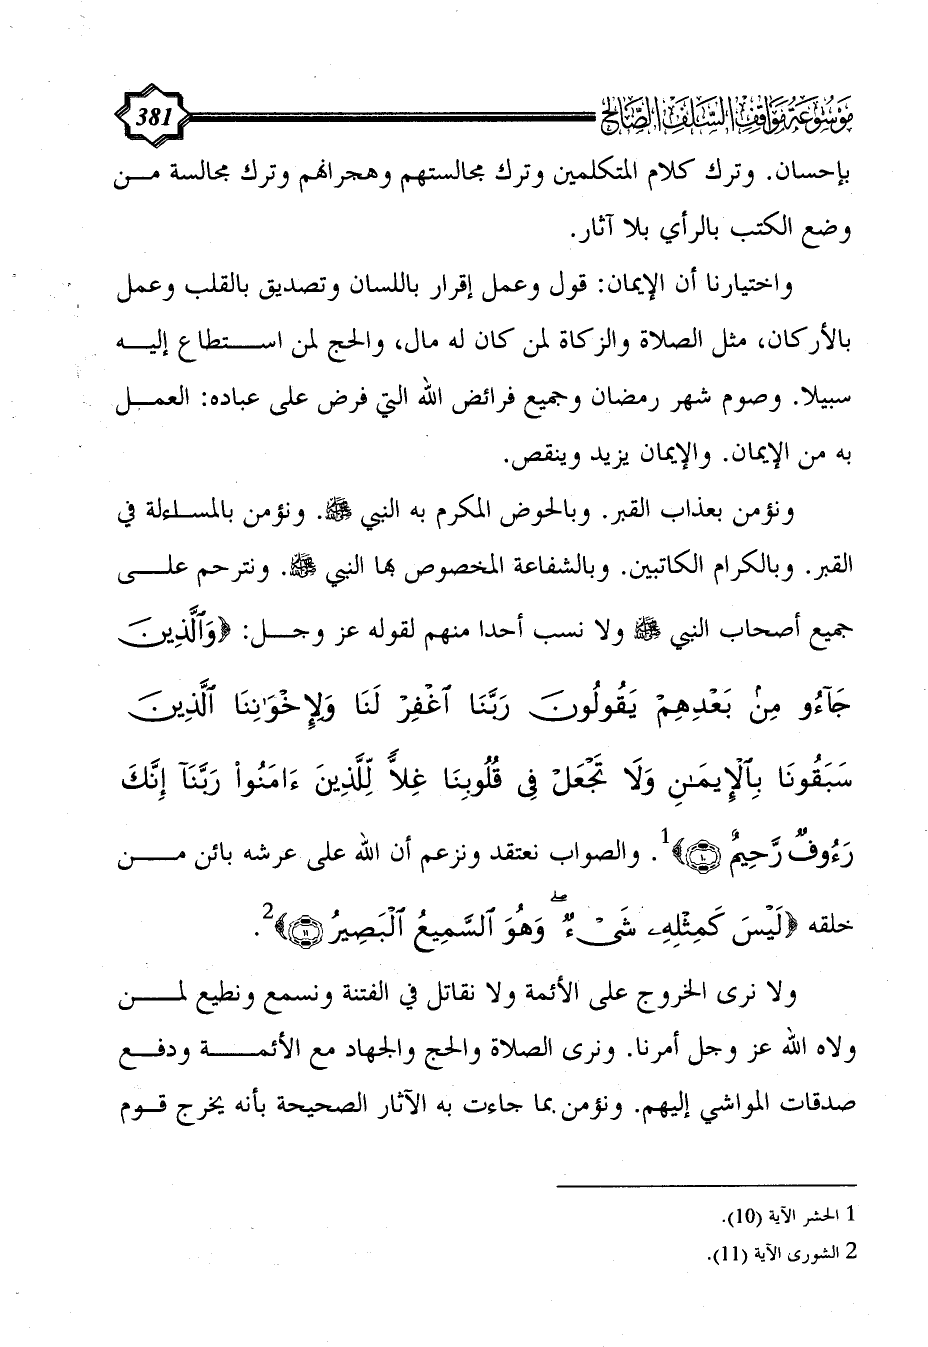 موسوعة مواقف السلف الصالح 381
بإحسان. وترك كلام المتكلمين وترك مجالستهم وهجرانهم وترك مجالسة من
وضع الكتب بالرأي بلا آثار.
واختيارنا أن الإيمان: قول وعمل إقرار باللسان وتصديق بالقلب وعمل
بالأركان، مثل الصلاة والزكاة لمن كان له مال، والحج لمن استطاع إليه
سبيلا. وصوم شهر رمضان وجميع فرائض الله التي فرض على عباده: العمل
به من الإيمان. والإيمان يزيد وينقص.
ونؤمن بعذاب القبر. وبالحوض المكرم به النبي ﷺ. ونؤمن بالمساءلة في
القبر. وبالكرام الكاتبين. وبالشفاعة المخصوص بها النبي ﷺ. ونترحم على
جميع أصحاب النبي ﷺ ولا نسب أحدا منهم لقوله عز وجل: ﴿وَٱلَّذِينَ
جَآءُو مِنۢ بَعْدِهِمْ يَقُولُونَ رَبَّنَا ٱغْفِرْ لَنَا وَلِإِخْوَٰنِنَا ٱلَّذِينَ
سَبَقُونَا بِٱلْإِيمَٰنِ وَلَا تَجْعَلْ فِى قُلُوبِنَا غِلًّا لِّلَّذِينَ ءَامَنُوا۟ رَبَّنَآ إِنَّكَ
رَءُوفٌ رَّحِيمٌ ١٠﴾1. والصواب نعتقد ونزعم أن الله على عرشه بائن من
خلقه ﴿لَيْسَ كَمِثْلِهِۦ شَىْءٌ ۖ وَهُوَ ٱلسَّمِيعُ ٱلْبَصِيرُ ١١﴾2.
ولا نرى الخروج على الأئمة ولا نقاتل في الفتنة ونسمع ونطيع لمن
ولاه الله عز وجل أمرنا. ونرى الصلاة والحج والجهاد مع الأئمة ودفع
صدقات المواشي إليهم. ونؤمن بما جاءت به الآثار الصحيحة بأنه يخرج قوم
1 الحشر الآية (10).
2 الشورى الآية (11).